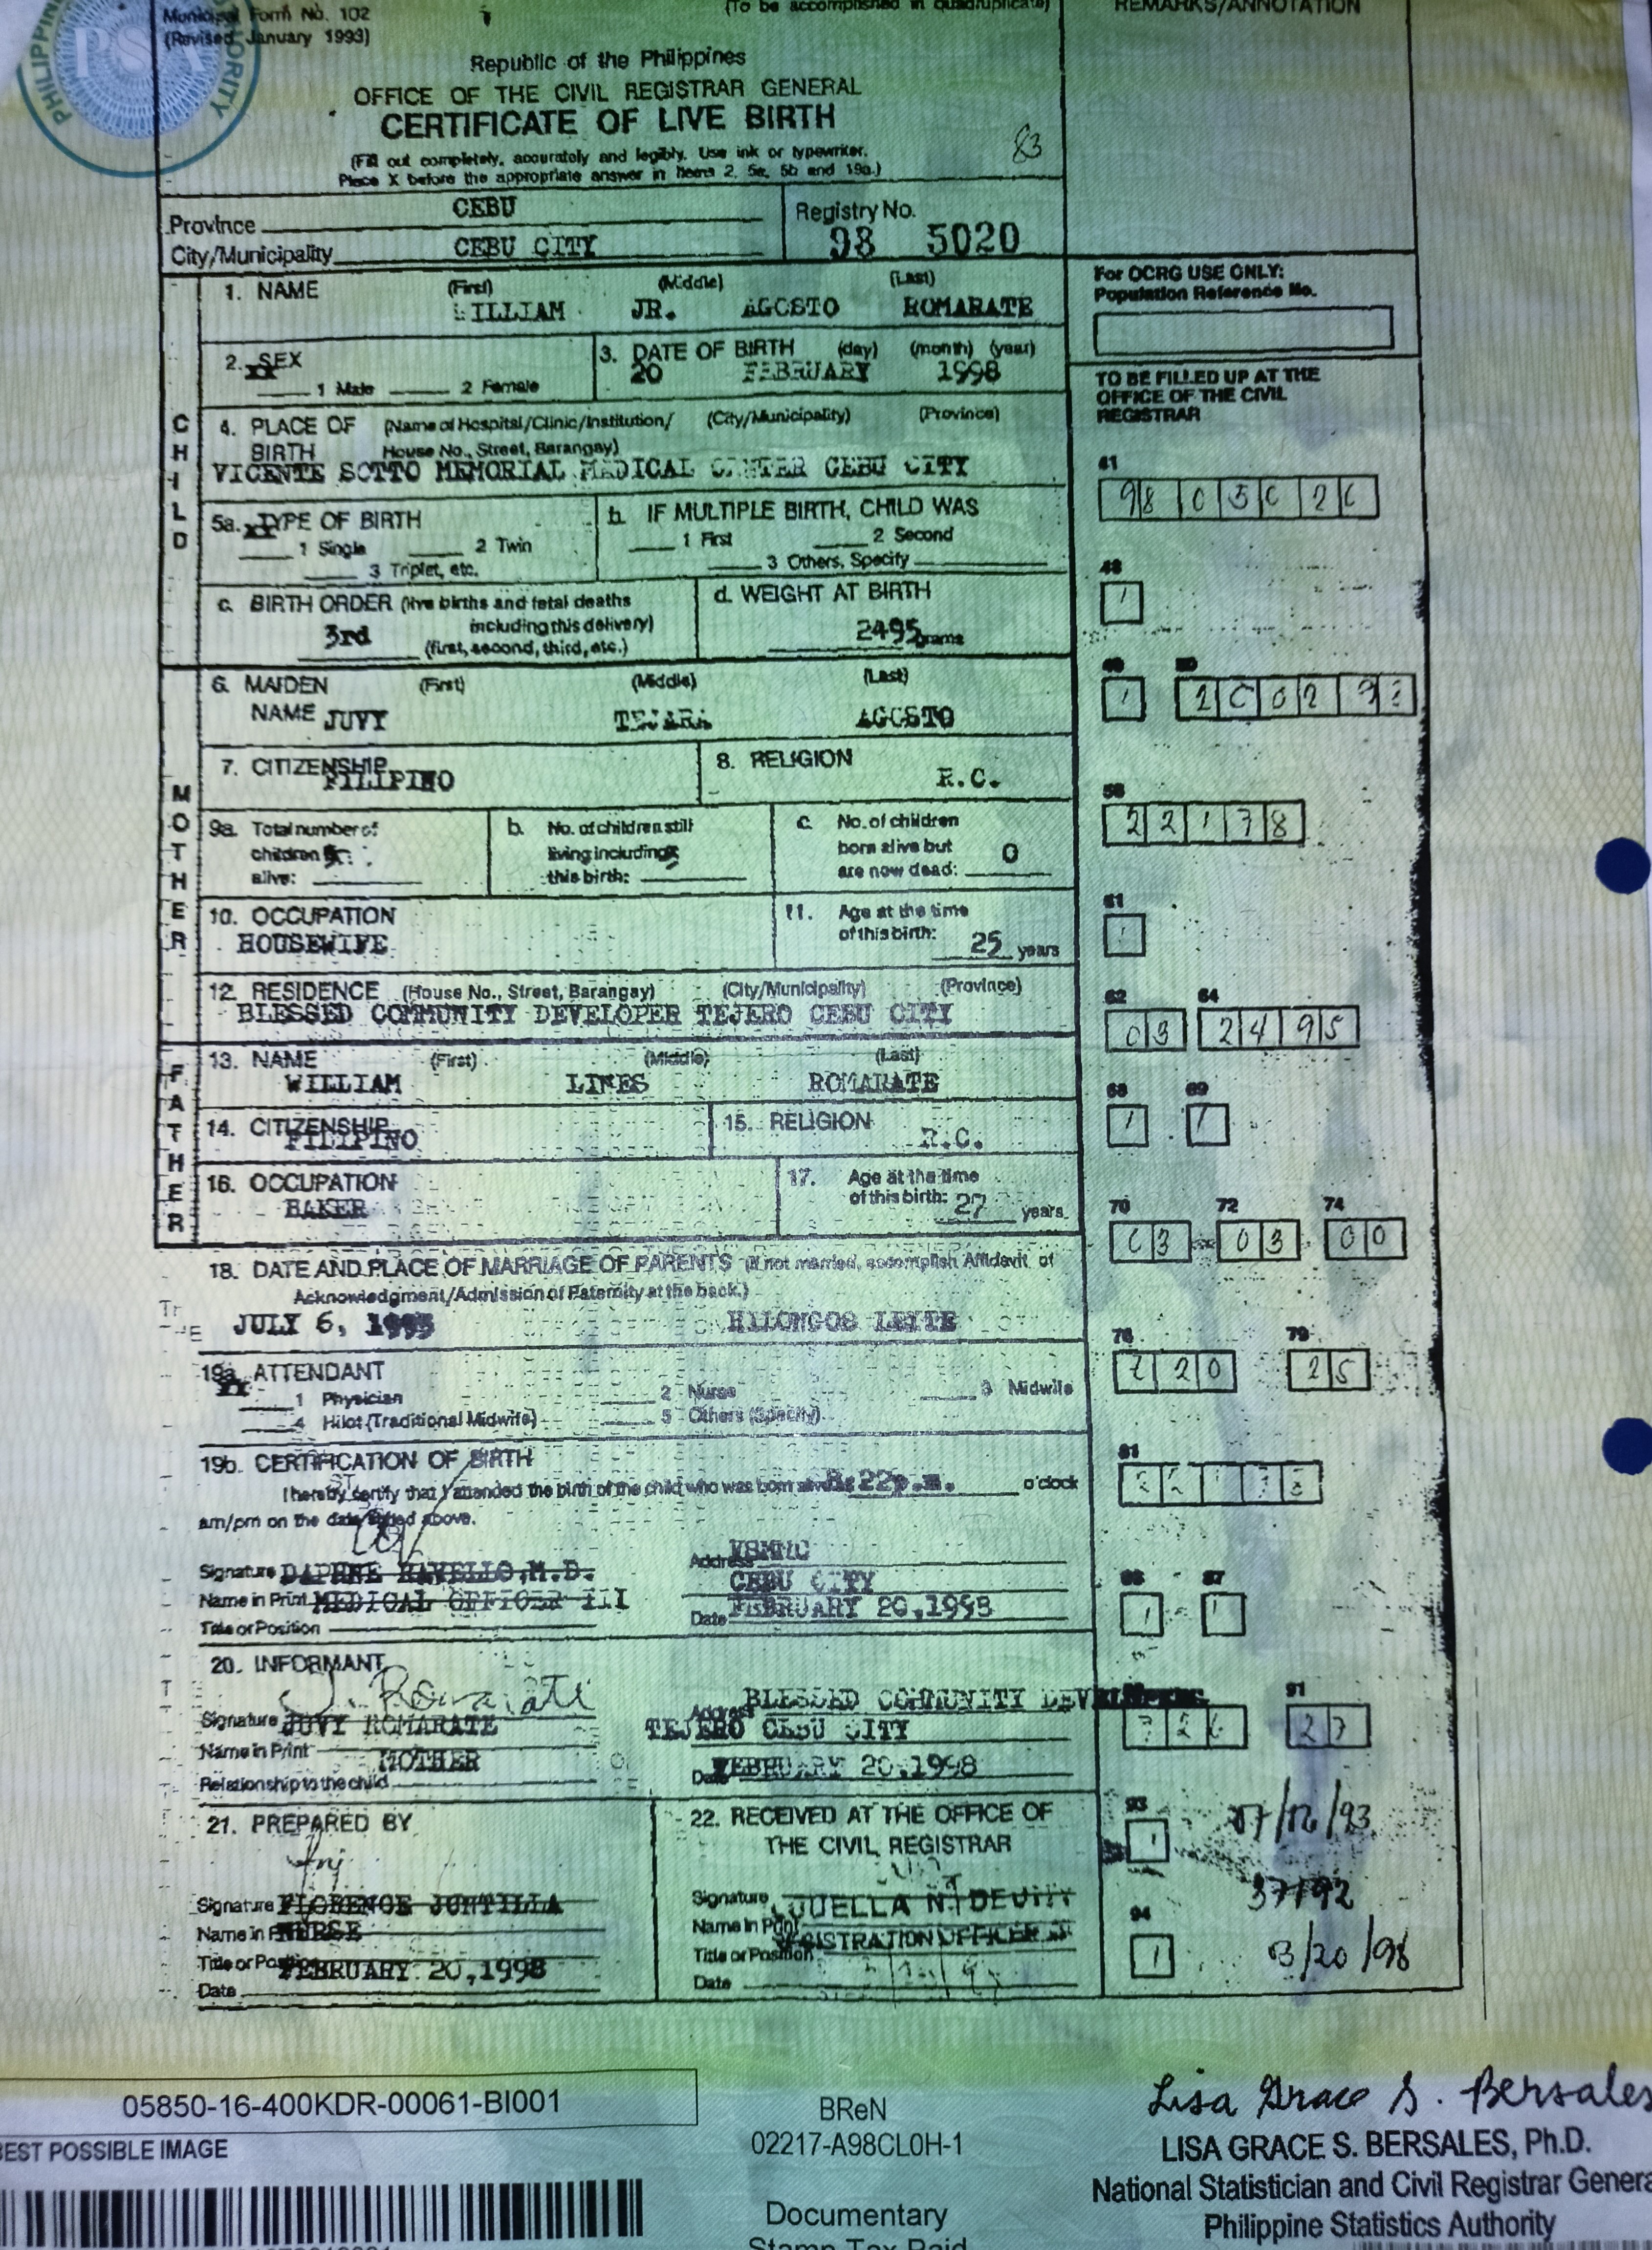 Municipal Form No. 102
(To be accomplished in quadruplicate)
REMARKS/ANNOTATION
(Revised January 1993)
PSA
Republic of the Philippines
OFFICE OF THE CIVIL REGISTRAR GENERAL
CERTIFICATE OF LIVE BIRTH
83
(Fill out completely, accurately and legibly. Use ink or typewriter.
Place X before the appropriate answer in Items 2, 5a, 5b and 19a.)
Province CEBU
Registry No.
City/Municipality CEBU CITY
98 5020
For OCRG USE ONLY:
Population Reference No.
CHILD
1. NAME (First) (Middle) (Last)
WILLIAM JR. AGOSTO ROMARATE
2. SEX
XX
1 Male 2 Female
3. DATE OF BIRTH (day) (month) (year)
20 FEBRUARY 1998
TO BE FILLED UP AT THE
OFFICE OF THE CIVIL
REGISTRAR
4. PLACE OF (Name of Hospital/Clinic/Institution/ (City/Municipality) (Province)
BIRTH House No., Street, Barangay)
VICENTE SOTTO MEMORIAL MEDICAL CENTER CEBU CITY
41
98 0 5 0 2 0
5a. TYPE OF BIRTH
XX
1 Single 2 Twin
3 Triplet, etc.
b. IF MULTIPLE BIRTH, CHILD WAS
1 First 2 Second
3 Others, Specify
48
1
c. BIRTH ORDER (live births and fetal deaths
3rd including this delivery)
(first, second, third, etc.)
d. WEIGHT AT BIRTH
2495 grams
MOTHER
6. MAIDEN (First) (Middle) (Last)
NAME JUVY AGOSTO
49 50
1 2 0 0 2 9 8
7. CITIZENSHIP
FILIPINO
8. RELIGION
R.C.
56
2 2 1 7 8
9a. Total number of
children
alive:
b. No. of children still
living including
this birth:
c. No. of children
born alive but 0
are now dead:
10. OCCUPATION
HOUSEWIFE
11. Age at the time
of this birth: 25 years
61
1
12. RESIDENCE (House No., Street, Barangay) (City/Municipality) (Province)
BLESSED COMMUNITY DEVELOPER TEJERO CEBU CITY
62 64
0 3 2 4 9 5
FATHER
13. NAME (First) (Middle) (Last)
WILLIAM LIMES ROMARATE
14. CITIZENSHIP
FILIPINO
15. RELIGION
R.C.
68 69
1 1
16. OCCUPATION
BAKER
17. Age at the time
of this birth: 27 years
70 72 74
0 3 0 3 0 0
18. DATE AND PLACE OF MARRIAGE OF PARENTS (If not married, accomplish Affidavit of
Acknowledgment/Admission of Paternity at the back.)
JULY 6, 1993 HILONGOS LEYTE
76 79
7 2 0 2 5
19a. ATTENDANT
XX
1 Physician 2 Nurse 3 Midwife
4 Hilot (Traditional Midwife) 5 Others (Specify)
19b. CERTIFICATION OF BIRTH
I hereby certify that I attended the birth of the child who was born alive at 8:22p.m. o'clock
am/pm on the date stated above.
81
2 2 1 7 8
Signature DAPHNE RAVELLO, M.D.
Name in Print MEDICAL OFFICER III
Title or Position
Address VSMMC
CEBU CITY
Date FEBRUARY 20,1998
86 87
1 1
20. INFORMANT
J. Romarate
Signature JUVY ROMARATE
Name in Print
MOTHER
Relationship to the child
Address BLESSED COMMUNITY DEVELOPERS
TEJERO CEBU CITY
Date FEBRUARY 20,1998
91
2 7
21. PREPARED BY
Signature FLORENCE
Name in Print NURSE
Title or Position FEBRUARY 20,1998
Date
22. RECEIVED AT THE OFFICE OF
THE CIVIL REGISTRAR
Signature
Name in Print
Title or Position REGISTRATION OFFICER
Date
93
1
07/06/93
37192
94
1
03/20/98
05850-16-400KDR-00061-BI001
BEST POSSIBLE IMAGE
BReN
02217-A98CL0H-1
Documentary
Stamp Tax Paid
Lisa Grace S. Bersales
LISA GRACE S. BERSALES, Ph.D.
National Statistician and Civil Registrar General
Philippine Statistics Authority